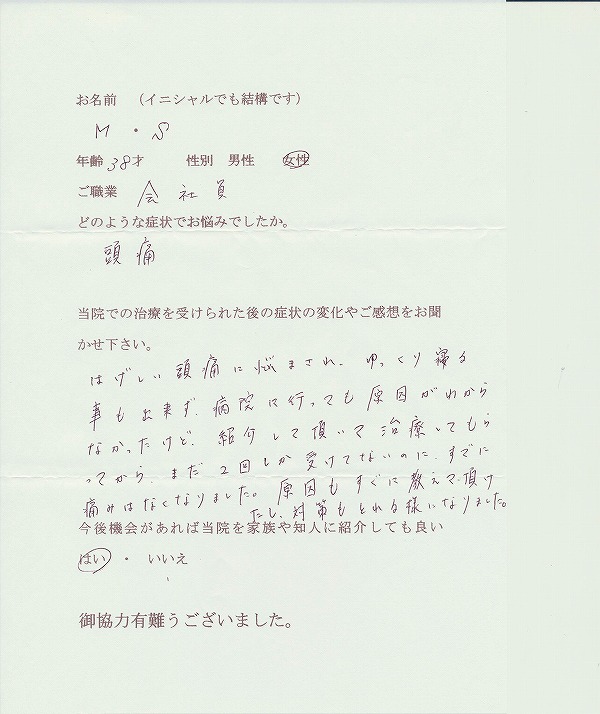 お名前　（イニシャルでも結構です）
M・S
年齢 38才　性別　男性　女性
ご職業　会社員
どのような症状でお悩みでしたか。
頭痛
当院での治療を受けられた後の症状の変化やご感想をお聞
かせ下さい。
はげしい頭痛に悩まされ、ゆっくり寝る
事も出来ず、病院に行っても原因がわから
なかったけど、紹介して頂いて治療してもら
ってから、まだ2回しか受けてないのに、すでに
痛みはなくなりました。原因もすぐに教えて頂け
たし、対策もとれる様になりました。
今後機会があれば当院を家族や知人に紹介しても良い
はい・いいえ
御協力有難うございました。